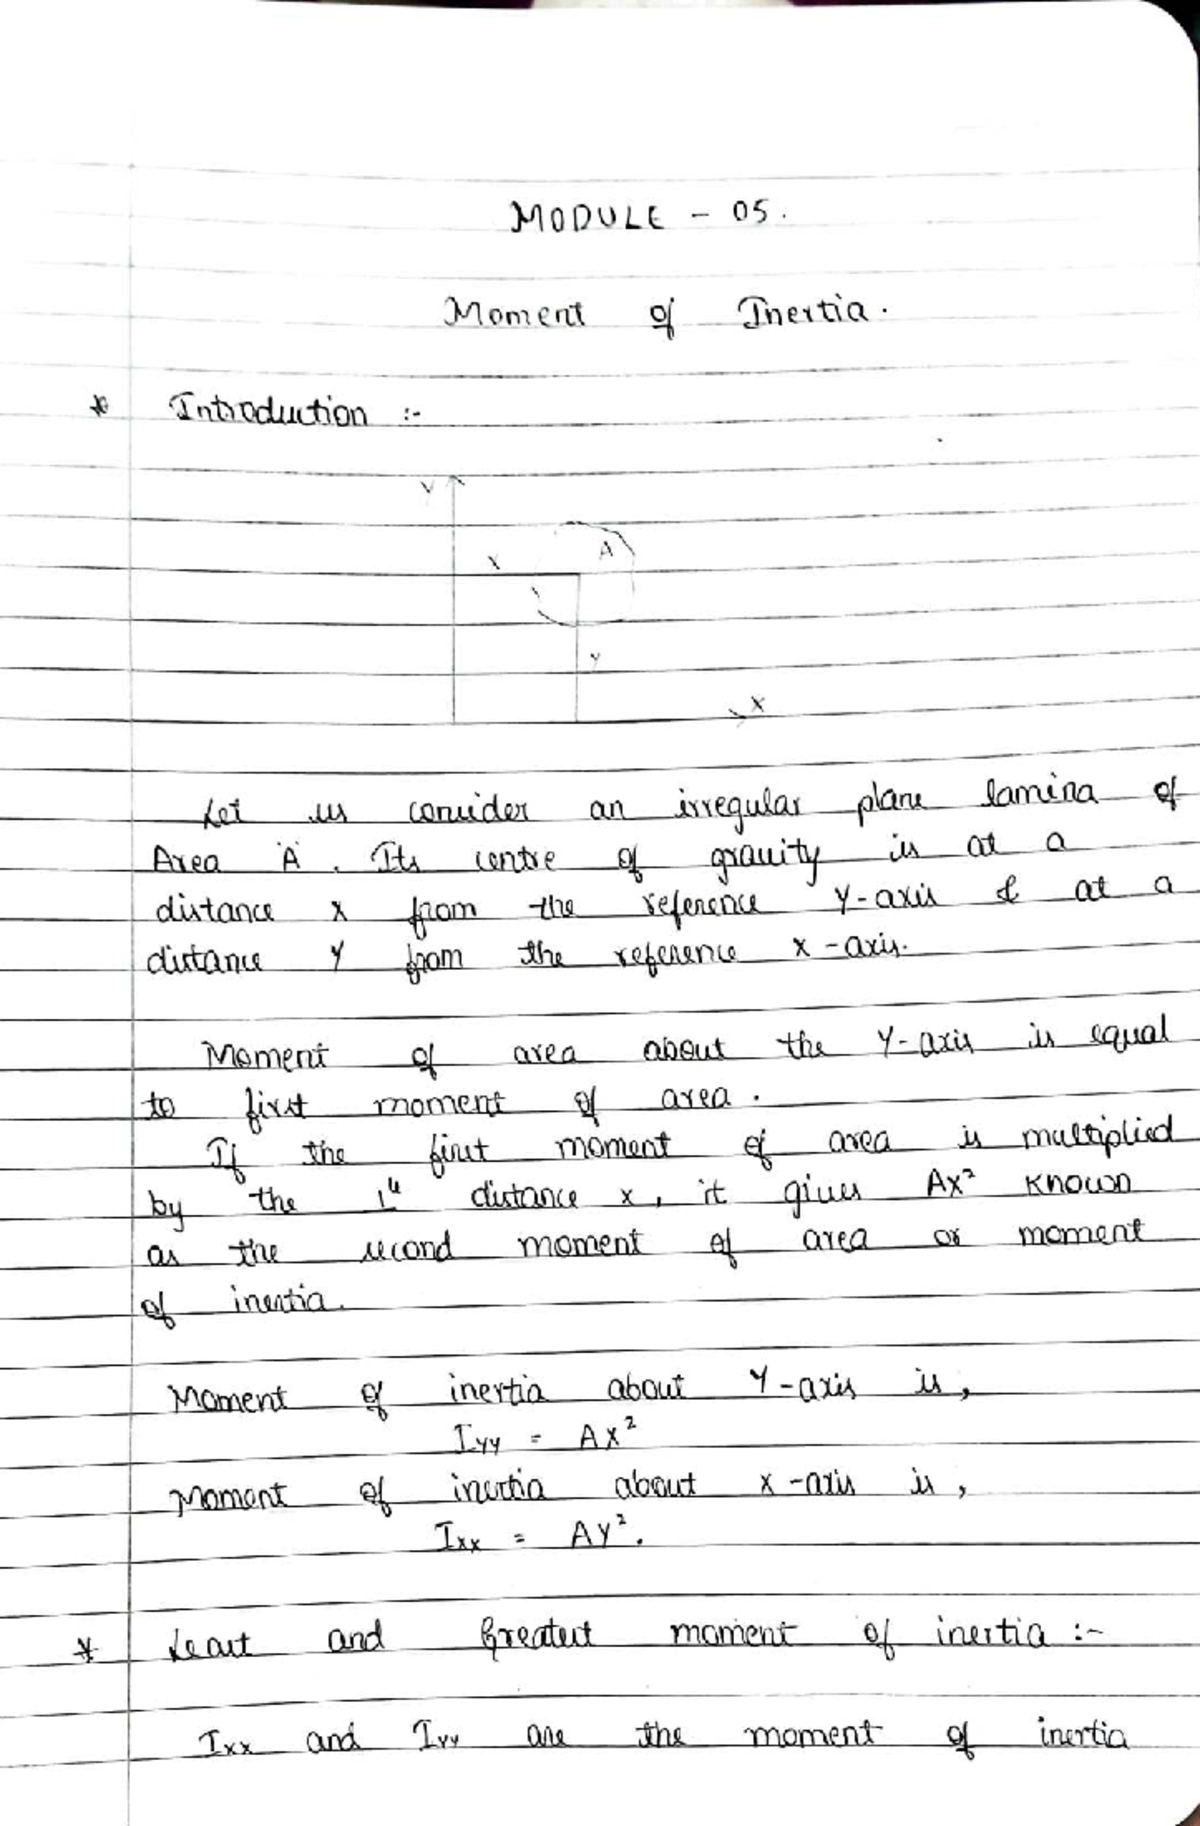 MODULE - 05.
Moment of Inertia.
* Introduction :-
Y
A
X
Y
X
Let us consider an irregular plane lamina of
Area 'A'. Its centre of gravity is at a
distance x from the reference Y-axis & at a
distance Y from the reference X-axis.
Moment of area about the Y-axis is equal
to first moment of area.
If the first moment of area is multiplied
by the distance x, it gives AX² known
as the second moment of area or moment
of inertia.
Moment of inertia about Y-axis is,
Iyy = AX²
Moment of inertia about X-axis is,
Ixx = AY².
* Least and Greatest moment of inertia :-
Ixx and Iyy are the moment of inertia